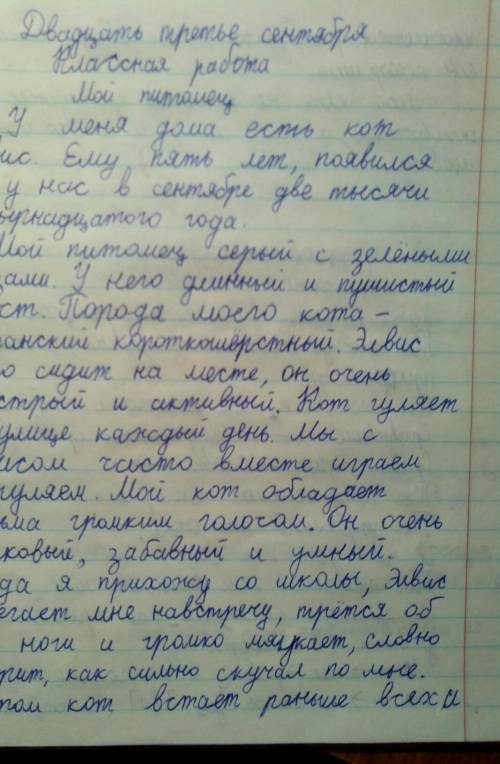 Двадцать третье сентября
Классная работа
Мой питомец
У меня дома есть кот
ис. Ему пять лет, появился
у нас в сентябре две тысячи
ырнадцатого года.
Мой питомец серый с зелёными
зами. У него длинный и пушистый
ст. Порода моего кота –
анский короткошёрстный. Элвис
о сидит на месте, он очень
стрый и активный. Кот гуляет
улице каждый день. Мы с
исом часто вместе играем
гуляем. Мой кот обладает
ьма громким голосом. Он очень
ковый, забавный и умный.
да я прихожу со школы, Элвис
егает мне навстречу, трётся об
ноги и громко мяукает, словно
рит, как сильно скучал по мне.
том кот встаёт раньше всех и